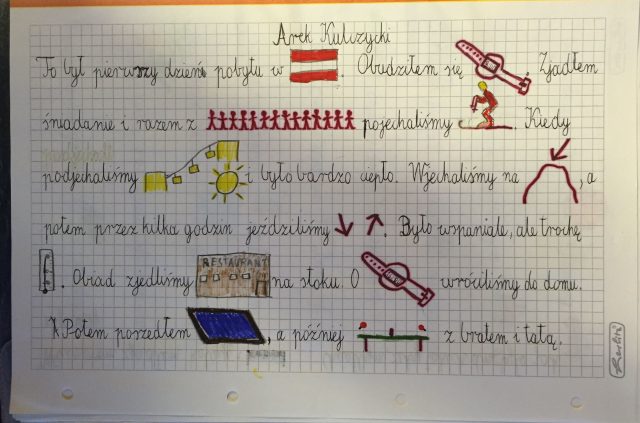 Arek Kulczycki
To był pierwszy dzień pobytu w . Obudziłem się . Zjadłem
śniadanie i razem z pojechaliśmy . Kiedy
podjechaliśmy i było bardzo ciepło. Wjechaliśmy na , a
potem przez kilka godzin jeździliśmy . Było wspaniale, ale trochę
. Obiad zjedliśmy RESTAURANT na stoku. O wróciliśmy do domu.
Potem poszedłem , a później z bratem i tatą.
Herlitz